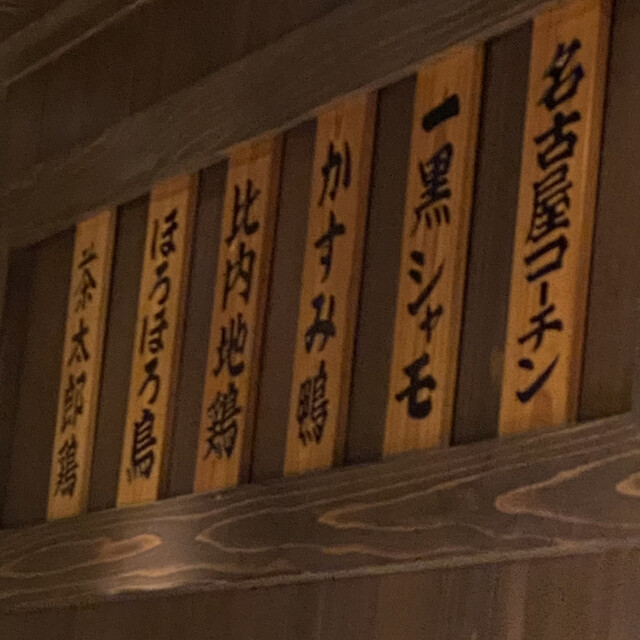 名古屋コーチン
一黒シャモ
かすみ鴨
比内地鶏
ほろほろ鳥
奈太郎鶏